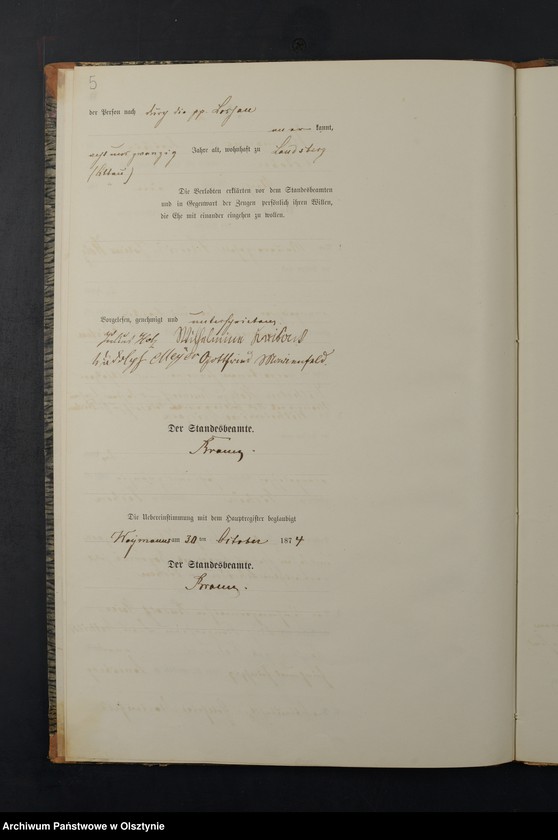 5
der Person nach durch die pp.
kannt,
acht und zwanzig Jahre alt, wohnhaft zu Landsberg
Die Verlobten erklärten vor dem Standesbeamten
und in Gegenwart der Zeugen persönlich ihren Willen,
die Ehe mit einander eingehen zu wollen.
Vorgelesen, genehmigt und unterschrieben
Julius Wilhelmine
Rudolph Gottfried Marienfeld.
Der Standesbeamte.
Die Uebereinstimmung mit dem Hauptregister beglaubigt
am 30 ten October 1874
Der Standesbeamte.
Archiwum Państwowe w Olsztynie